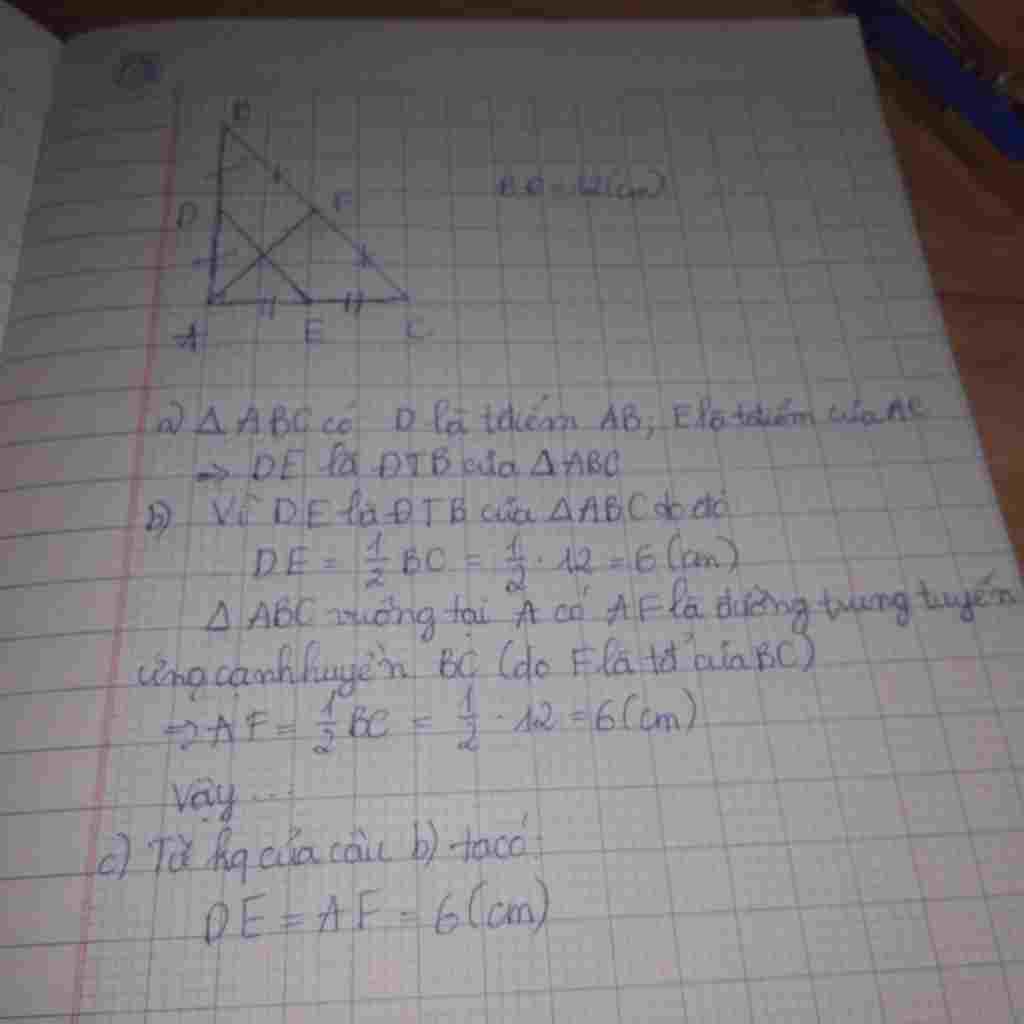 B
D
F
A
E
C
BC = 12(cm)
a) Δ ABC có D là tđiểm AB, E là tđiểm của AC
⇒ DE là ĐTB của ΔABC
b) Vì DE là ĐTB của ΔABC do đó
DE = 1/2 BC = 1/2 · 12 = 6 (cm)
Δ ABC vuông tại A có AF là đường trung tuyến
ứng cạnh huyền BC (do F là tđ của BC)
⇒ AF = 1/2 BC = 1/2 · 12 = 6 (cm)
Vậy ...
c) Từ kq của câu b) ta có:
DE = AF = 6 (cm)